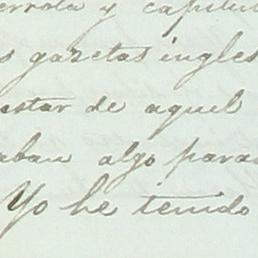 errota y capitul
s gazetas ingles
estar de aquel
aban algo para
Yo he tenido